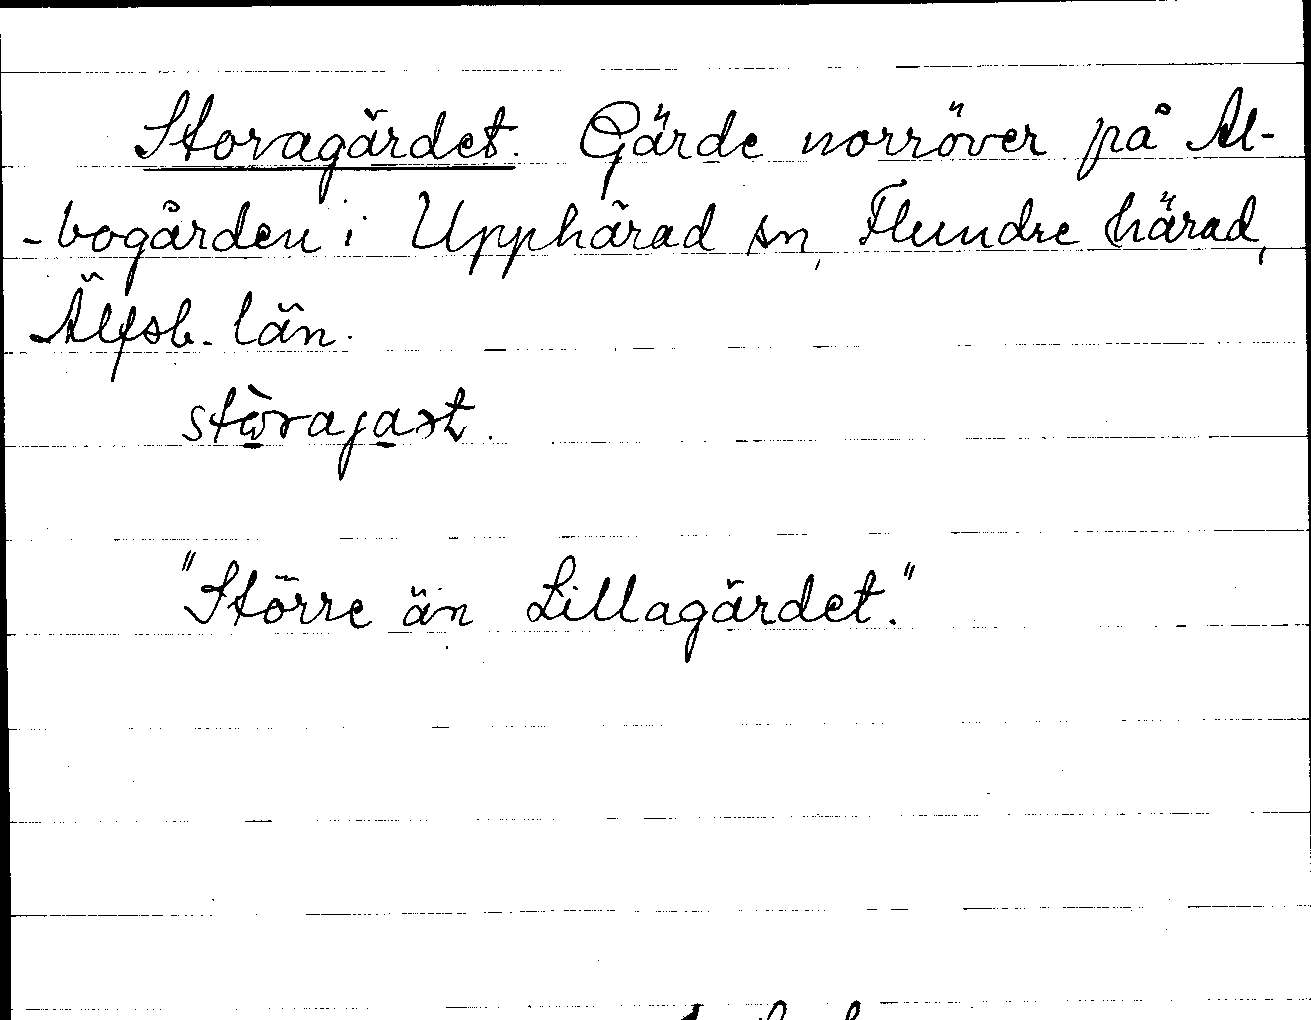 Storagärdet. Gärde norröver på Al-
-bogården i Upphärad sn, Flundre härad,
Älfsb. län.
stòrajart.
"Större än Lillagärdet."